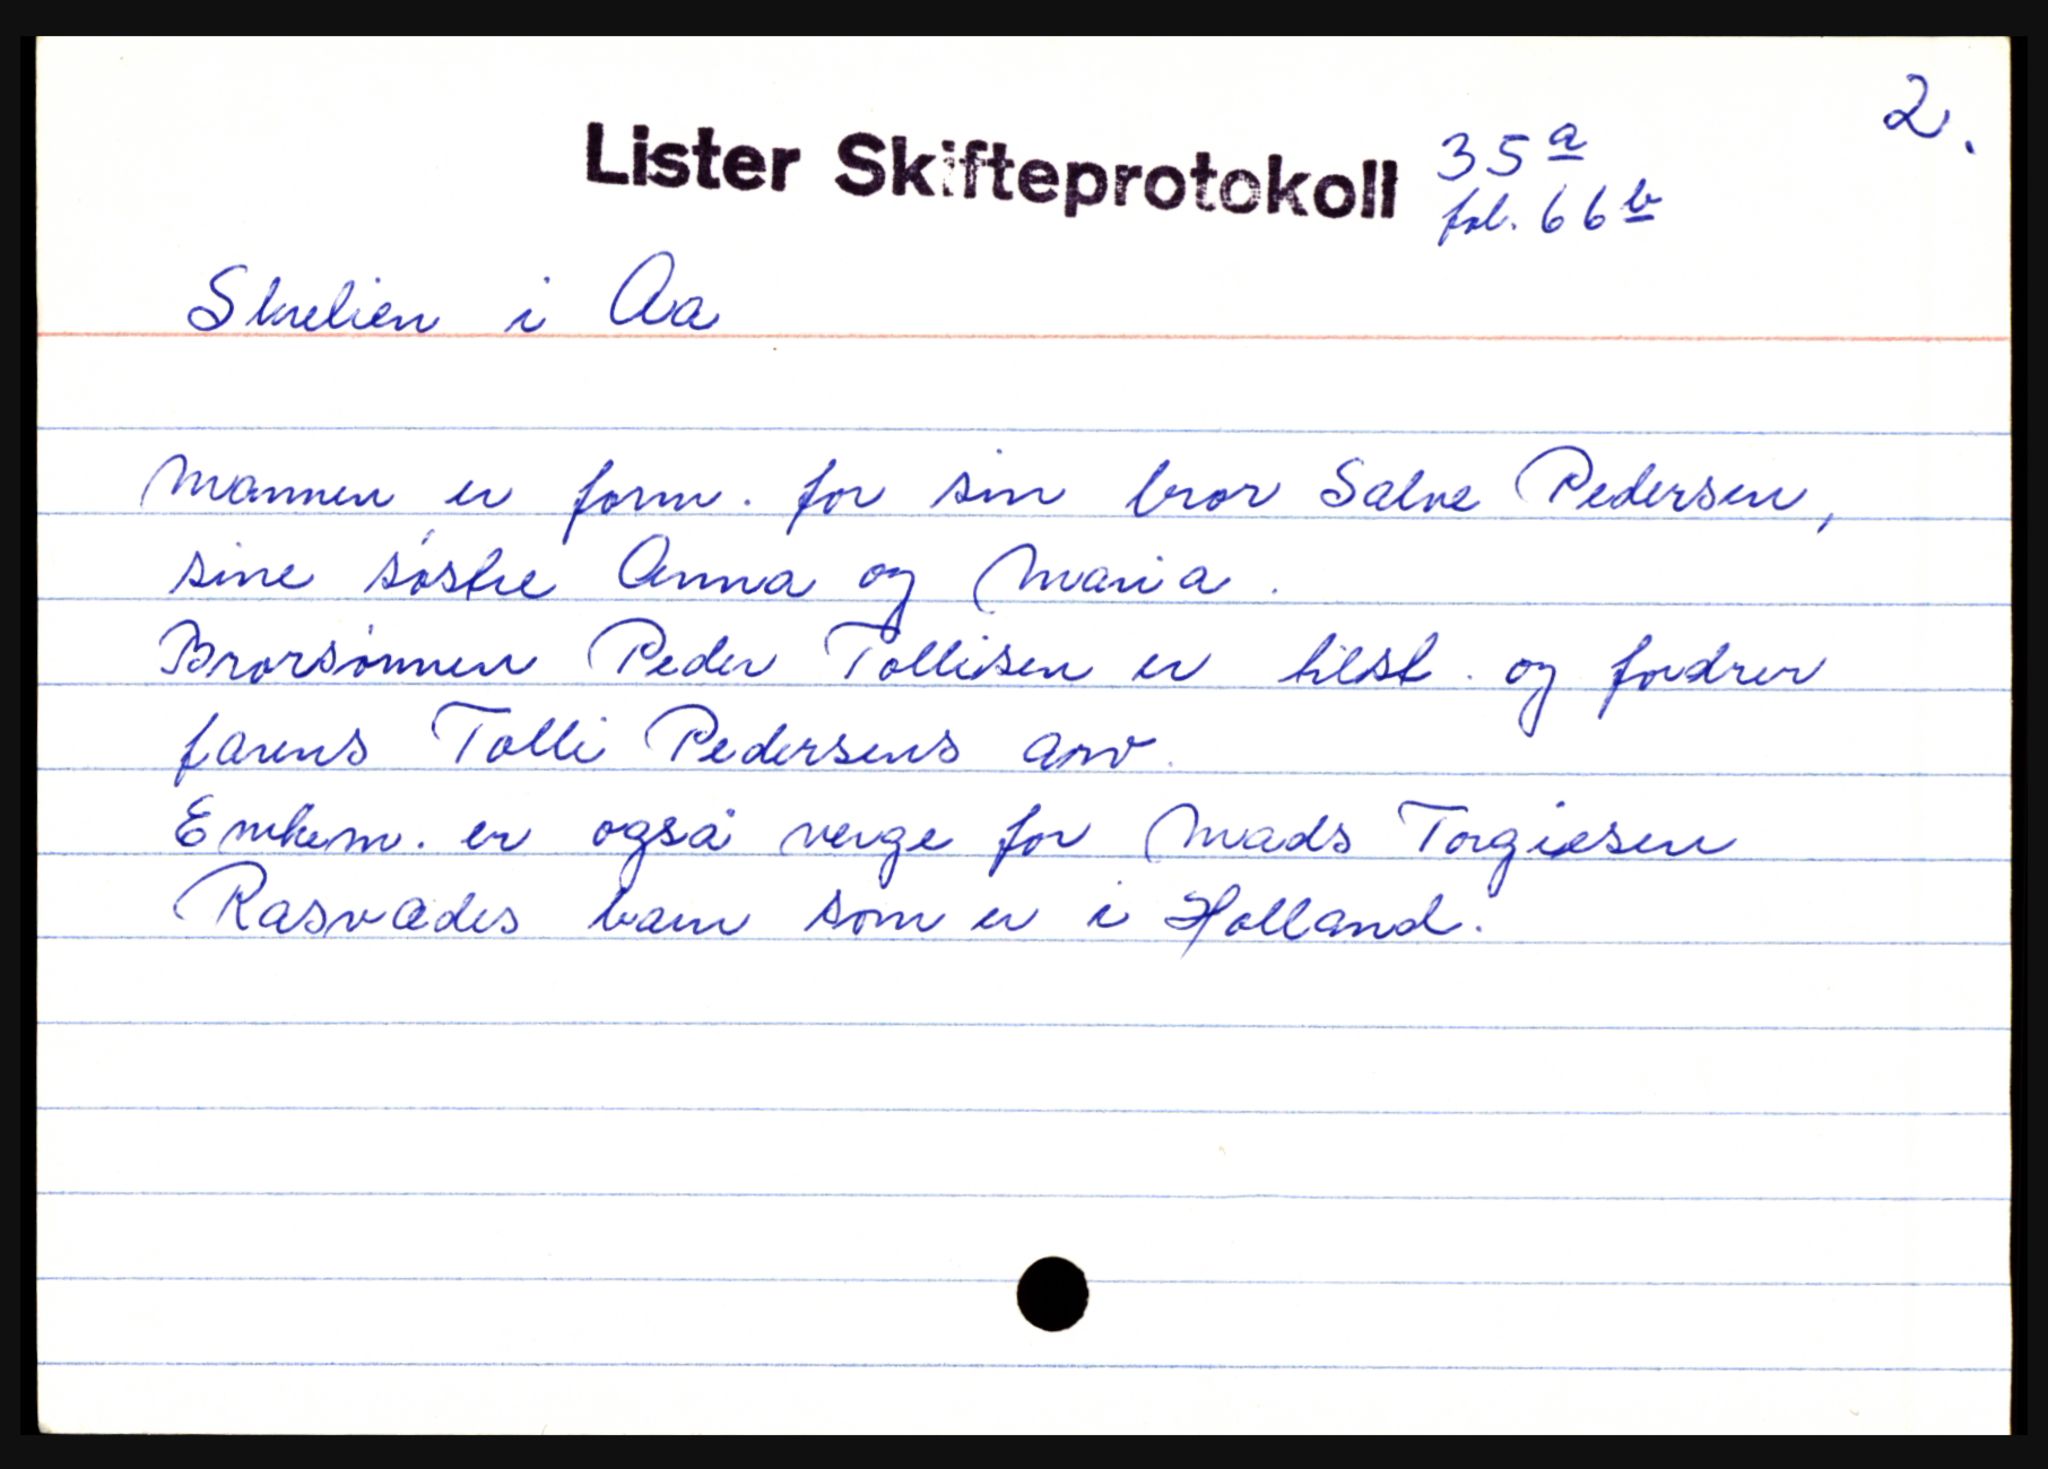 2.
Lister Skifteprotokoll 35a
fol. 66b
Skrelien i Aa
Mannen er form. for sin bror Salve Pedersen,
sine søstre Anna og Maria.
Brorsønnen Peder Tollisen er tilst. og fordrer
farens Tolli Pedersens arv.
Enkem. er også verge for Mads Torgiesen
Rasvædes barn som er i Holland.